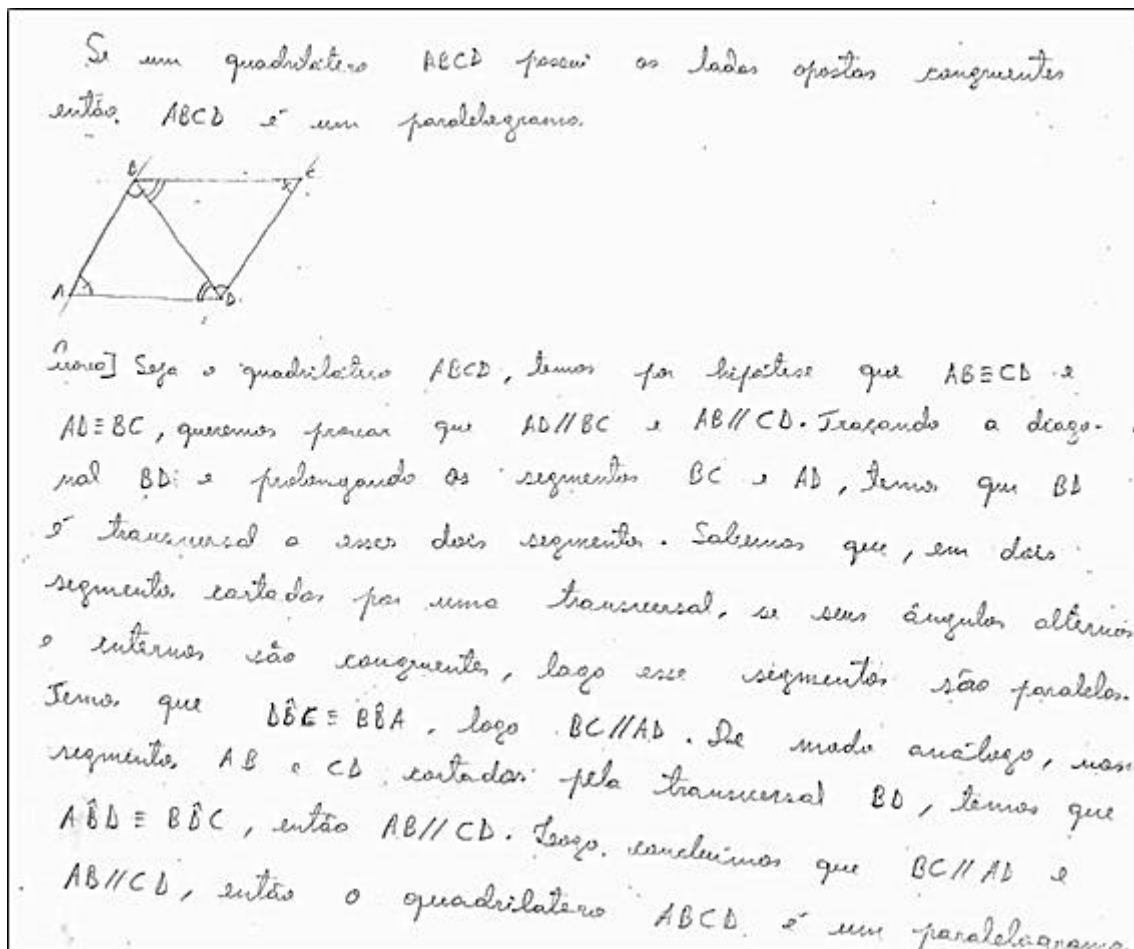 Se um quadrilátero ABCD possui os lados opostos congruentes
então. ABCD é um paralelogramo.
B C
A D
Prova] Seja o quadrilátero ABCD, temos por hipótese que AB≡CD e
AD≡BC, queremos provar que AD//BC e AB//CD. Traçando a diago-
nal BD e prolongando os segmentos BC e AD, temos que BD
é transversal a esses dois segmentos. Sabemos que, em dois
segmentos cortados por uma transversal, se seus ângulos alternos
e internos são congruentes, logo esse segmentos são paralelos.
Temos que DB̂C ≡ BD̂A, logo BC//AD. De modo análogo, nos
segmentos AB e CD cortados pela transversal BD, temos que
AB̂D ≡ BD̂C, então AB//CD. Logo, concluimos que BC//AD e
AB//CD, então o quadrilatero ABCD é um paralelogramo